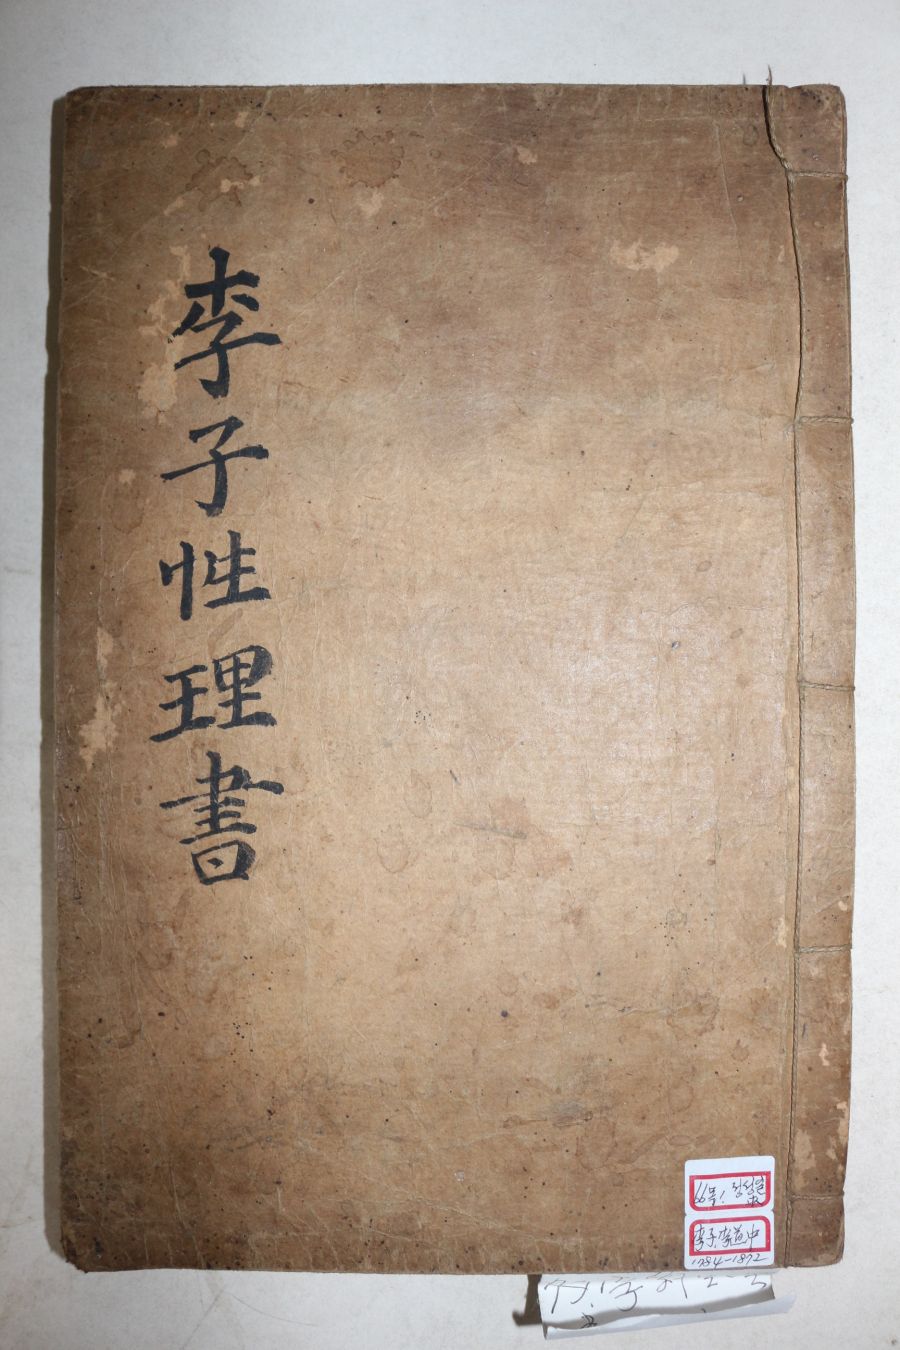 李子性理書
李子. 李道中
1784-1872